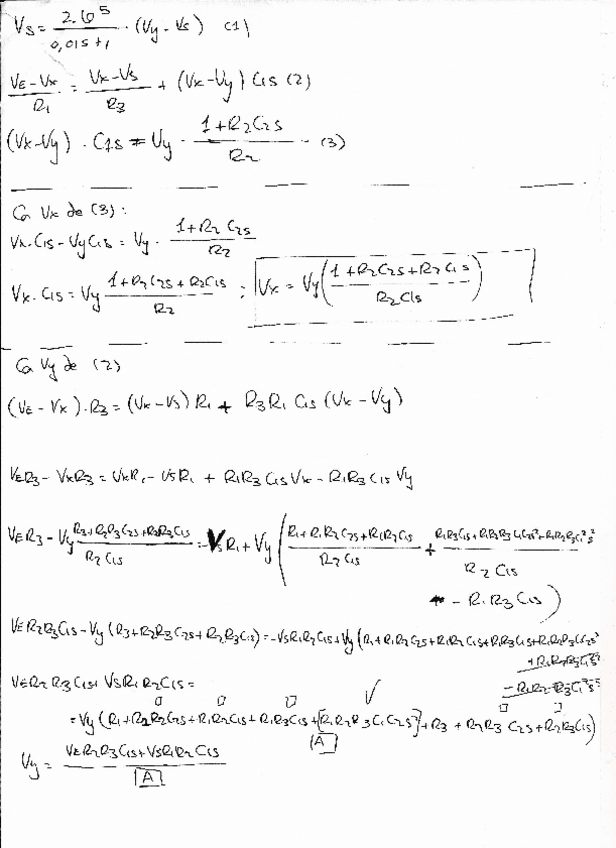 Vs = 2.10^5 / (0,01s+1) · (Vy - Vs) (1)
(VE - Vx)/R1 = (Vx - Vs)/R3 + (Vx - Vy) C1s (2)
(Vx - Vy) · C1s = Vy · (1 + R2C2s)/R2 (3)
Ca Vx de (3):
Vx·C1s - VyC1s = Vy · (1 + R2C2s)/R2
Vx·C1s = Vy (1 + R2C2s + R2C1s)/R2 ; Vx = Vy ((1 + R2C2s + R2C1s)/(R2C1s))
Ca Vy de (2)
(VE - Vx)·R3 = (Vx - Vs) R1 + R3R1 C1s (Vx - Vy)
VER3 - VxR3 = VxR1 - VsR1 + R1R3 C1s Vx - R1R3 C1s Vy
VER3 - Vy (R3 + R2R3C2s + R2R3C1s)/(R2C1s) = -VsR1 + Vy ((R1 + R1R2C2s + R1R2C1s)/(R2C1s) + (R1R3C1s + R1R2R3C1C2s² + R1R2R3C1²s²)/(R2C1s)
- R1R3C1s)
VER2R3C1s - Vy (R3 + R2R3C2s + R2R3C1s) = -VsR1R2C1s + Vy (R1 + R1R2C2s + R1R2C1s + R1R3C1s + R1R2R3C1C2s²
+ R1R2R3C1²s²
- R1R2R3C1²s²
VER2R3C1s + VsR1R2C1s =
= Vy (R1 + R2R2C2s + R1R2C1s + R1R3C1s + [R1R2R3C1C2s²] + R3 + R2R3C2s + R2R3C1s)
A
Vy = (VER2R3C1s + VsR1R2C1s)/A